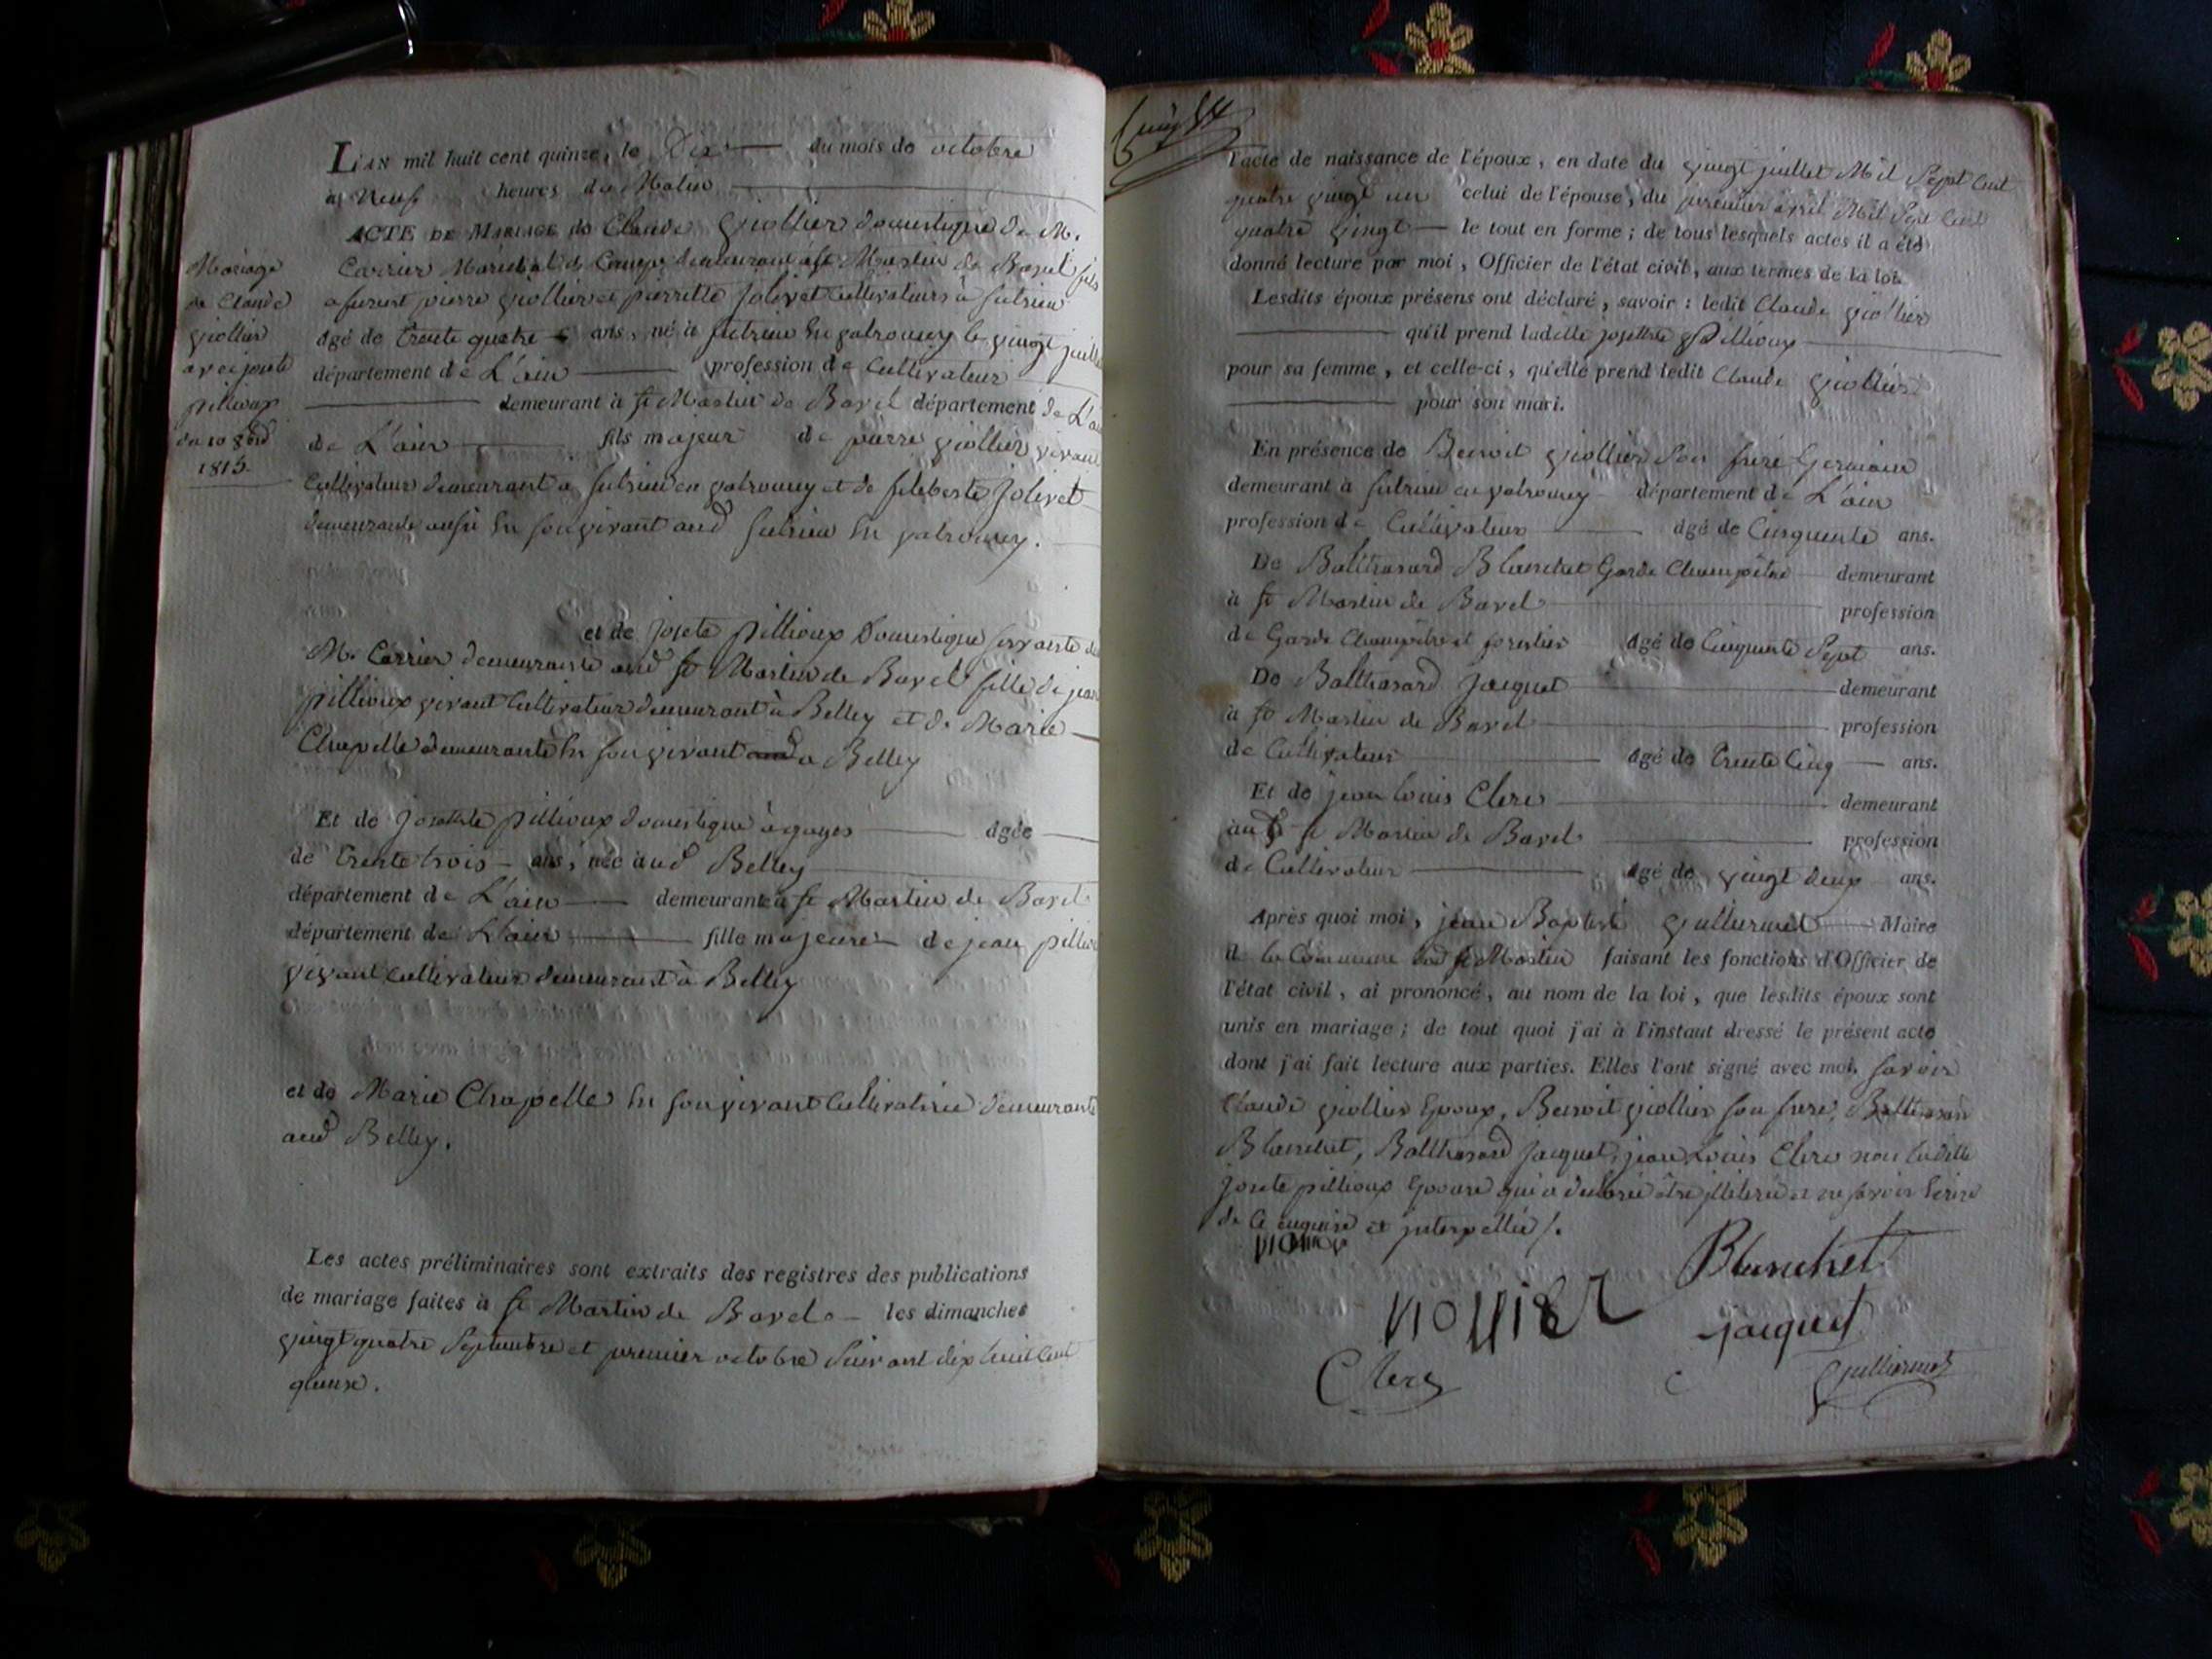 L'AN mil huit cent quinze, le Dix du mois de octobre
à Neuf heures du Matin
ACTE DE MARIAGE de Claude Viollier domestique de M.
Carrier Maréchal de Camp demeurant à St Martin de Bavel fils
pierre Viollier et pierrette Jolivet Cultivateurs à Sutrieu
âgé de trente quatre ans, né à Sutrieu En valromey le vingt juillet
département de L'ain profession de Cultivateur
demeurant à St Martin de Bavel département de L'ain
de L'ain fils majeur de pierre Viollier vivant
Cultivateur demeurant à Sutrieu en valromey et de Jolivet
demeurante aussi En son vivant aud Sutrieu En valromey.
Mariage
de Claude
Viollier
avec josete
pillioux
du 10 8bre
1815.
et de josete pillioux Domestique servante de
M. Carrier demeurante aud St Martin de Bavel fille de jean
pillioux vivant Cultivateur demeurant à Belley et de Marie
Chapelle demeurante En son vivant aud a Belley
Et de Josette pillioux domestique à gages âgée
de trente trois ans, née aud Belley
département de L'ain demeurante à St Martin de Bavel
département de L'ain fille majeure de jean pillioux
vivant Cultivateur demeurant à Belley
et de Marie Chapelle En son vivant Cultivatrice demeurante
aud Belley.
Les actes préliminaires sont extraits des registres des publications
de mariage faites à St Martin de Bavel les dimanches
vingt quatre Septembre et premier octobre Suivant dix huit Cent
quinze.
l'acte de naissance de l'époux, en date du vingt juillet Mil Sept Cent
quatre vingt un celui de l'épouse, du premier avril Mil Sept Cent
quatre vingt le tout en forme; de tous lesquels actes il a été
donné lecture par moi, Officier de l'état civil, aux termes de la loi.
Lesdits époux présens ont déclaré, savoir: ledit Claude Viollier
qu'il prend ladite josette pillioux
pour sa femme, et celle-ci, qu'elle prend ledit Claude Viollier
pour son mari.
En présence de Benoit Viollier Son frere Germain
demeurant à Sutrieu en valromey département de L'ain
profession de Cultivateur âgé de Cinquante ans.
De Balthasard Blanchet Garde Champêtre demeurant
à St Martin de Bavel profession
de Garde Champêtre et forestier âgé de Cinquante Sept ans.
De Balthasard Jacquet demeurant
à St Martin de Bavel profession
de Cultivateur âgé de trente Cinq ans.
Et de jean Louis Clerc demeurant
au St Martin de Bavel profession
de Cultivateur âgé de vingt deux ans.
Après quoi moi, jean Baptiste Guillermet Maire
de la Commune dud St Martin faisant les fonctions d'Officier de
l'état civil, ai prononcé, au nom de la loi, que lesdits époux sont
unis en mariage; de tout quoi j'ai à l'instant dressé le présent acte
dont j'ai fait lecture aux parties. Elles l'ont signé avec moi, savoir
Claude Viollier Epoux, Benoit Viollier son frere, Balthasar
Blanchet, Balthasard Jacquet, jean Louis Clerc non ladite
josete pillioux Epouse qui a déclaré être jlliterée et ne savoir Ecrire
de ce enquise et jnterpellée /.
Blanchet
viollier
jacquet
Clerc
Guillermet